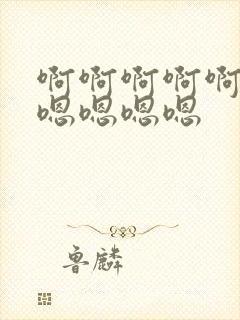 啊啊啊啊啊
嗯嗯嗯嗯
鲁麟